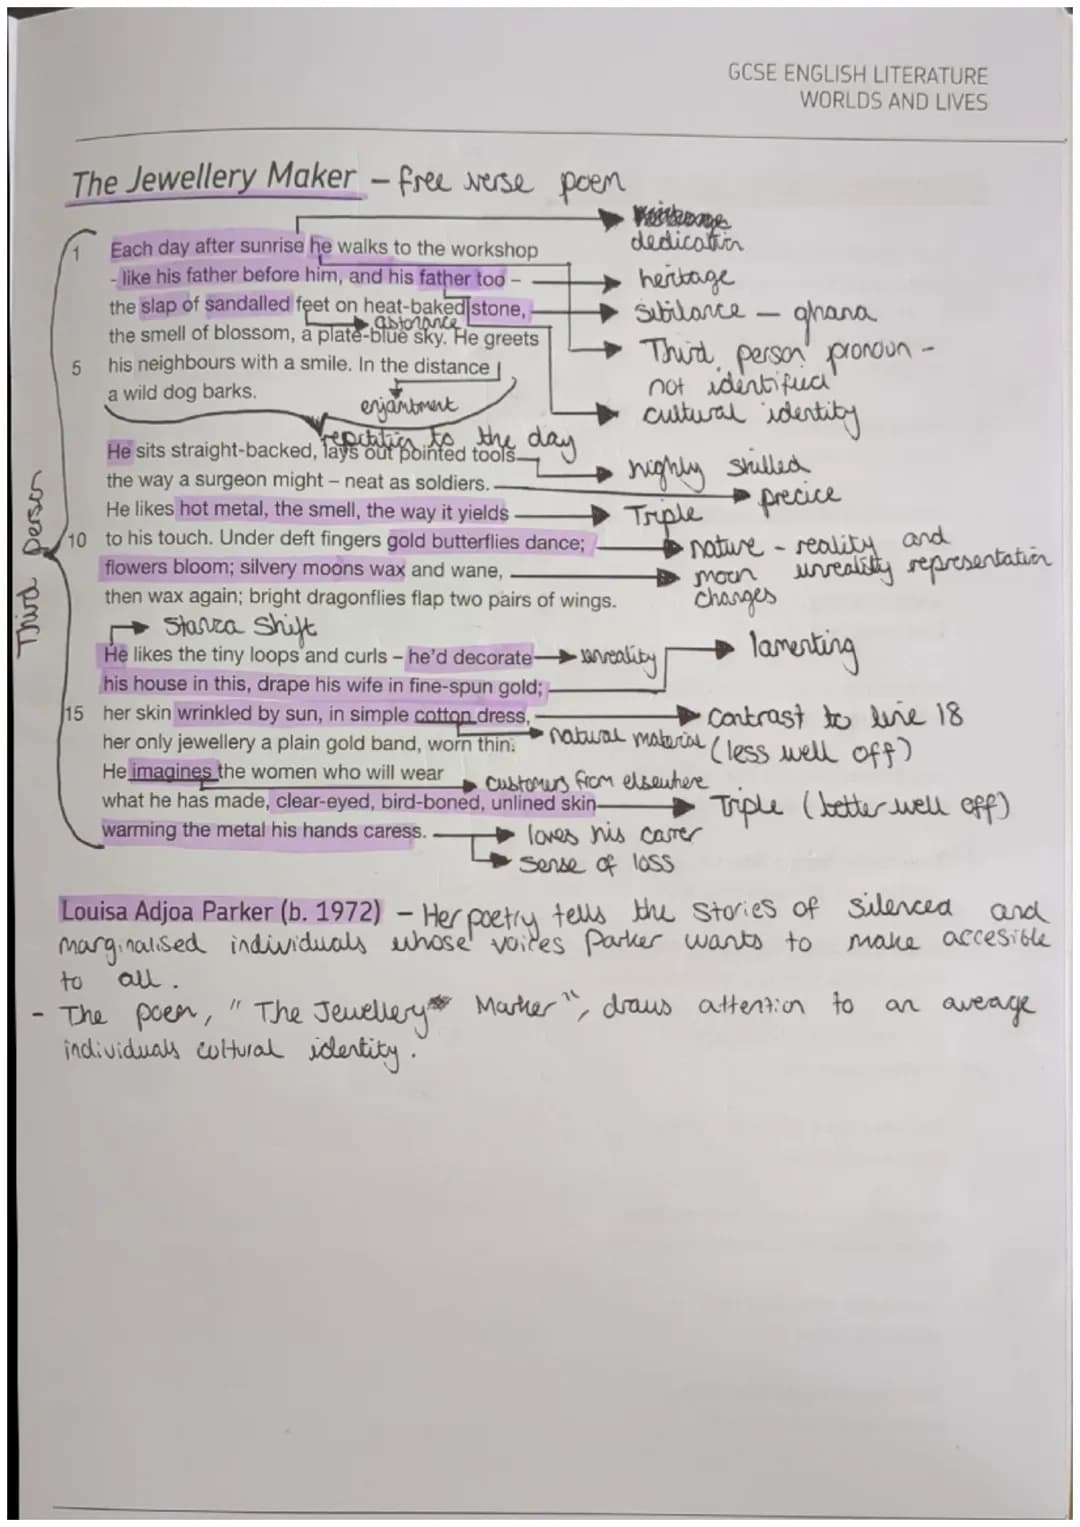 GCSE ENGLISH LITERATURE
WORLDS AND LIVES
The Jewellery Maker - free verse poem
dedication
1 Each day after sunrise he walks to the workshop
- like his father before him, and his father too -
heritage
the slap of sandalled feet on heat-baked stone,
Sibilance - ghana
the smell of blossom, a plate-blue sky. He greets
Third person pronoun -
not identified
5 his neighbours with a smile. In the distance
a wild dog barks.
enjantment
cultural identity
repitition to the day
He sits straight-backed, lays out pointed tools
highly skilled
the way a surgeon might – neat as soldiers.
precice
He likes hot metal, the smell, the way it yields
Triple
10 to his touch. Under deft fingers gold butterflies dance;
nature - reality and
unreality representation
flowers bloom; silvery moons wax and wane,
moon
changes
then wax again; bright dragonflies flap two pairs of wings.
Third person
Stanza Shift
He likes the tiny loops and curls – he'd decorate
unreality
lamenting
his house in this, drape his wife in fine-spun gold;
15 her skin wrinkled by sun, in simple cotton dress,
contrast to line 18
(less well off)
her only jewellery a plain gold band, worn thin.
natural material
He imagines the women who will wear
customers from elsewhere
what he has made, clear-eyed, bird-boned, unlined skin
Triple (better well off)
warming the metal his hands caress.
loves his carrer
Sense of loss
Louisa Adjoa Parker (b. 1972) - Her poetry tells the stories of silenced and
marginalised individuals whose voices Parker wants to make accesible
to all.
- The poem, "The Jewellery Marker", draws attention to an average
individuals coltural identity.